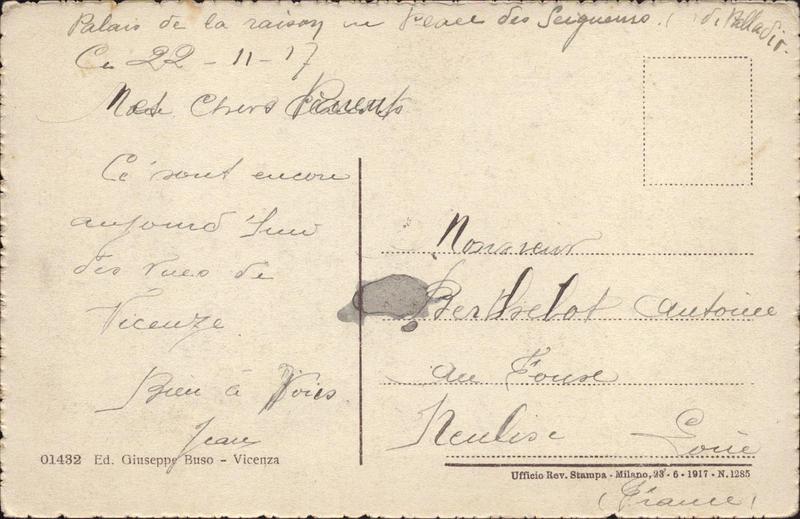 Palais de la raison Place des Seigneurs. ( de Palladio.
Ce 22-11-17
Mes Chers Parents
Ce sont encore
aujourd'hui
des vues de
Vicenze.
Bien à Vous
Jean
01432 Ed. Giuseppe Buso - Vicenza
Monsieur
Berthelot Antoine
au
Neulise Loire
Ufficio Rev. Stampa - Milano, 23-6-1917 - N. 1285
(France)